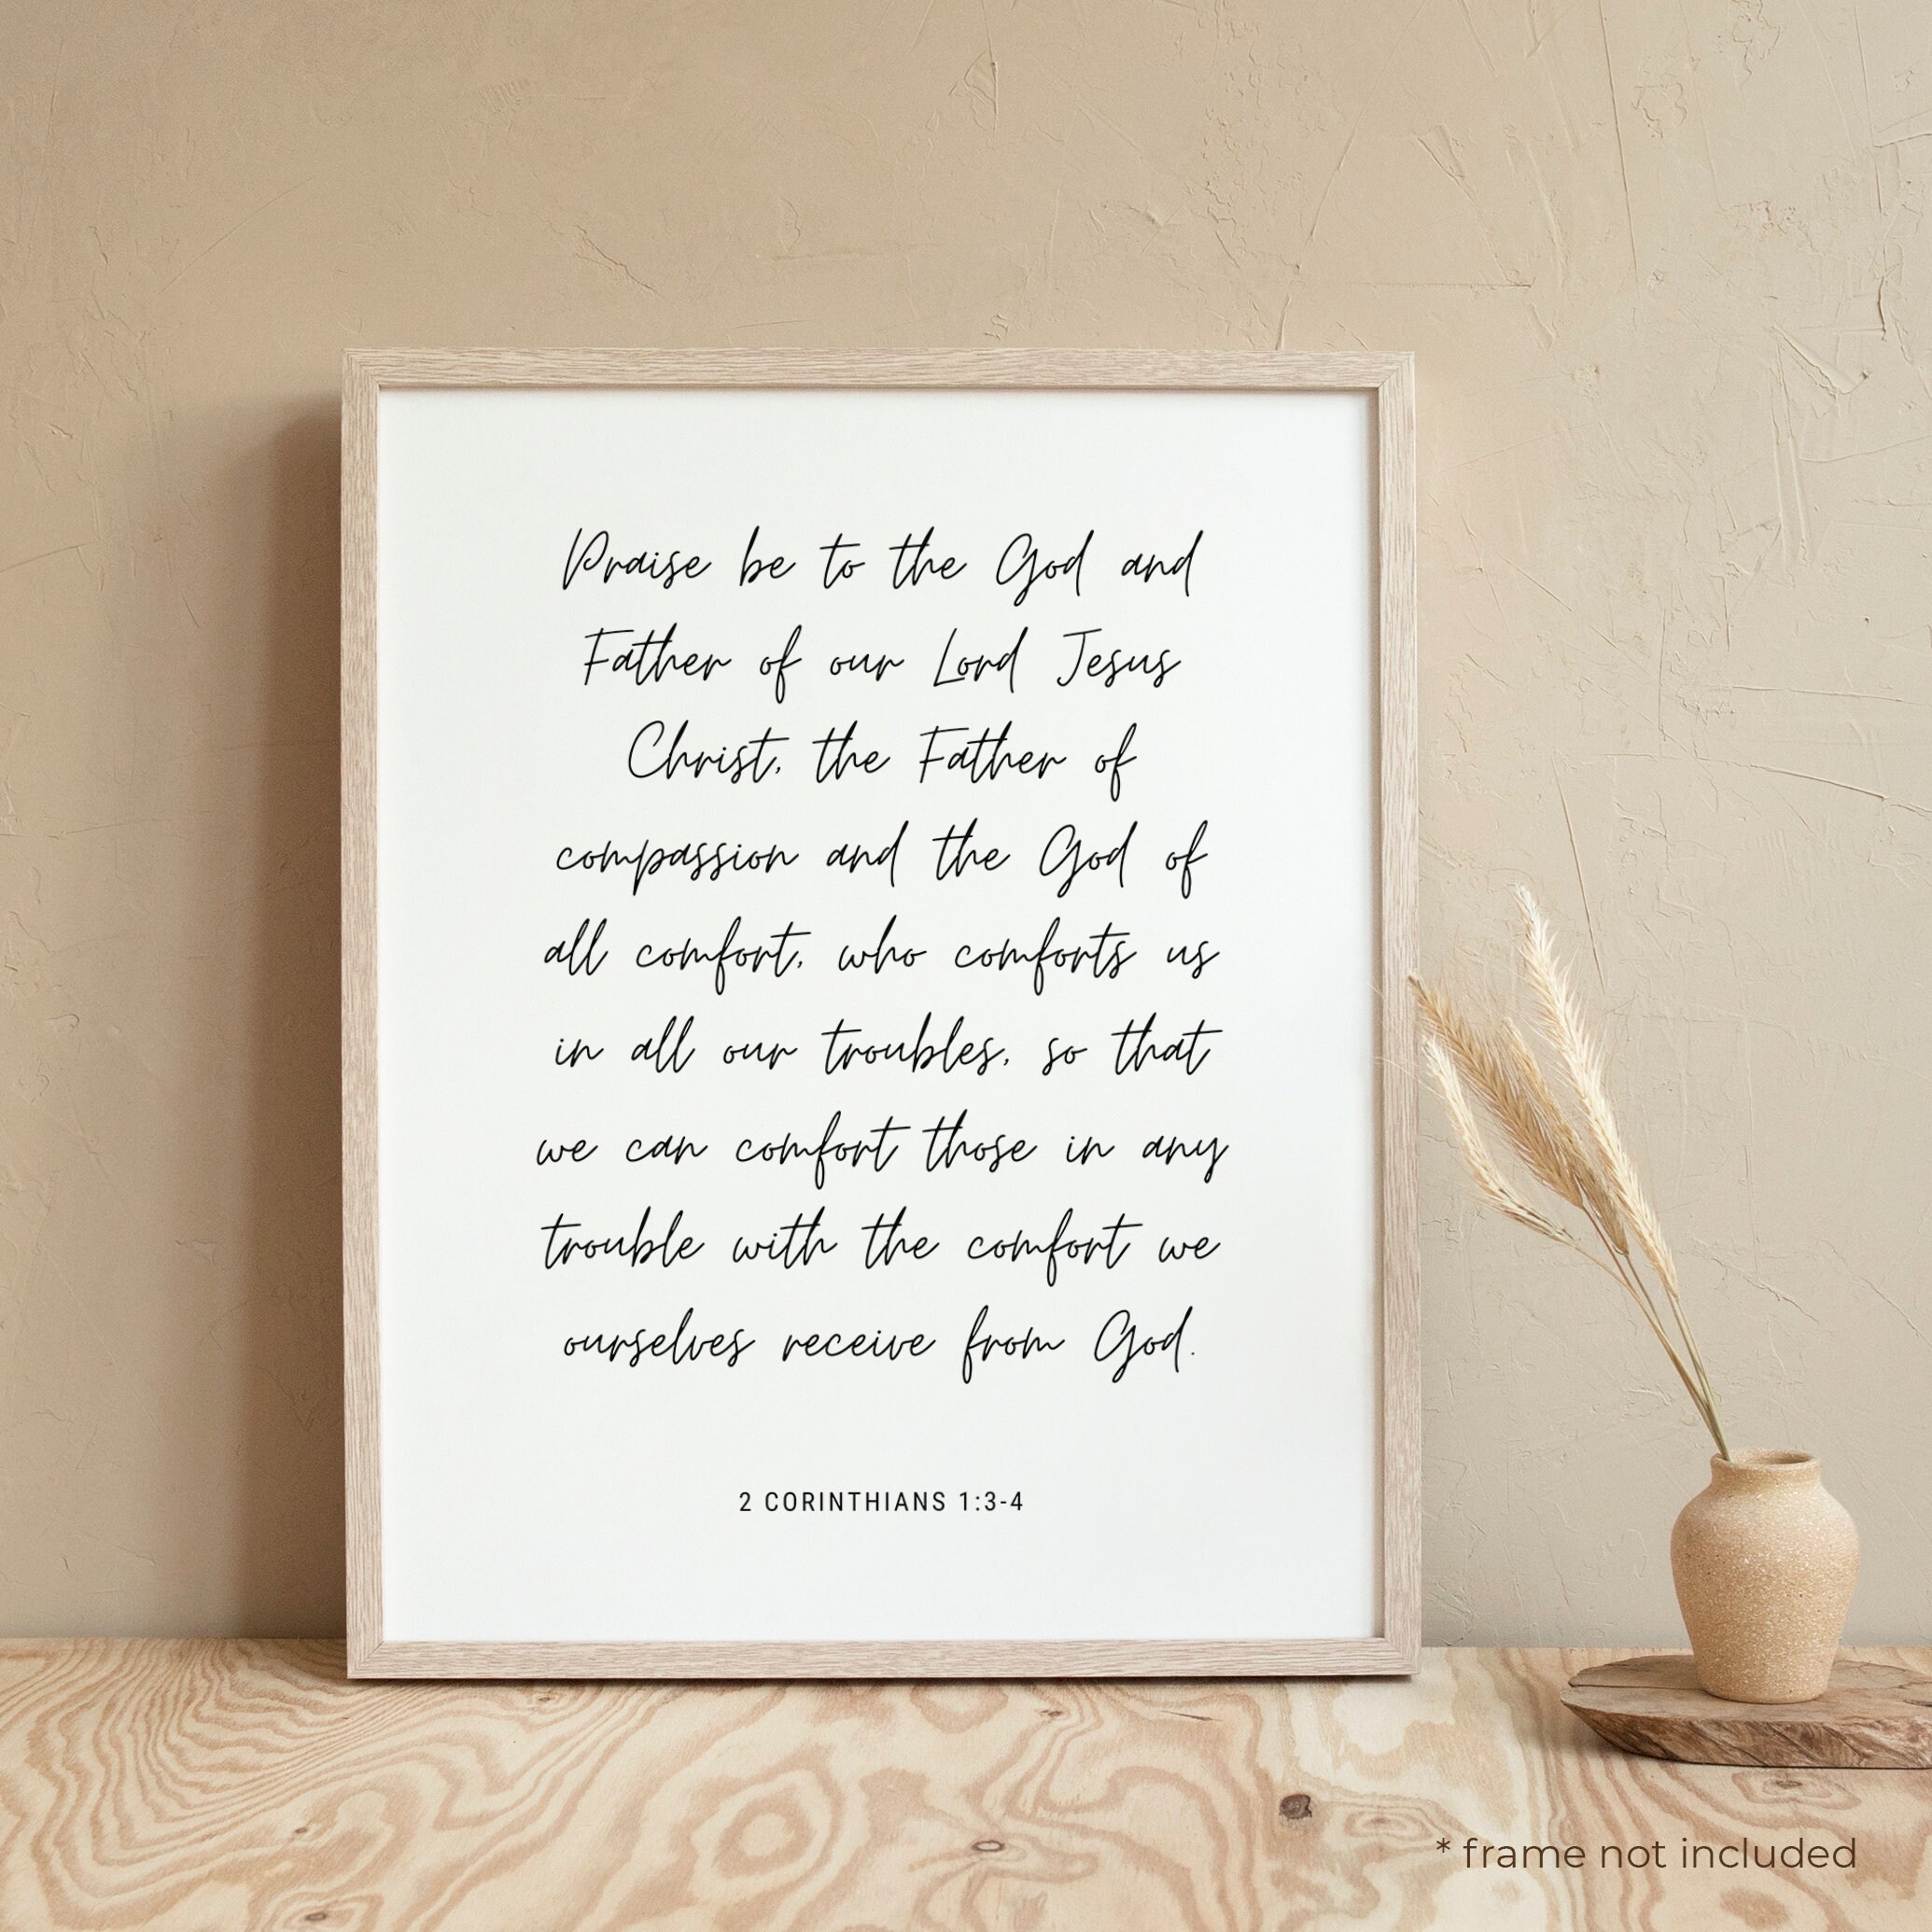 Praise be to the God and
Father of our Lord Jesus
Christ, the Father of
compassion and the God of
all comfort, who comforts us
in all our troubles, so that
we can comfort those in any
trouble with the comfort we
ourselves receive from God.
2 CORINTHIANS 1:3-4
* frame not included